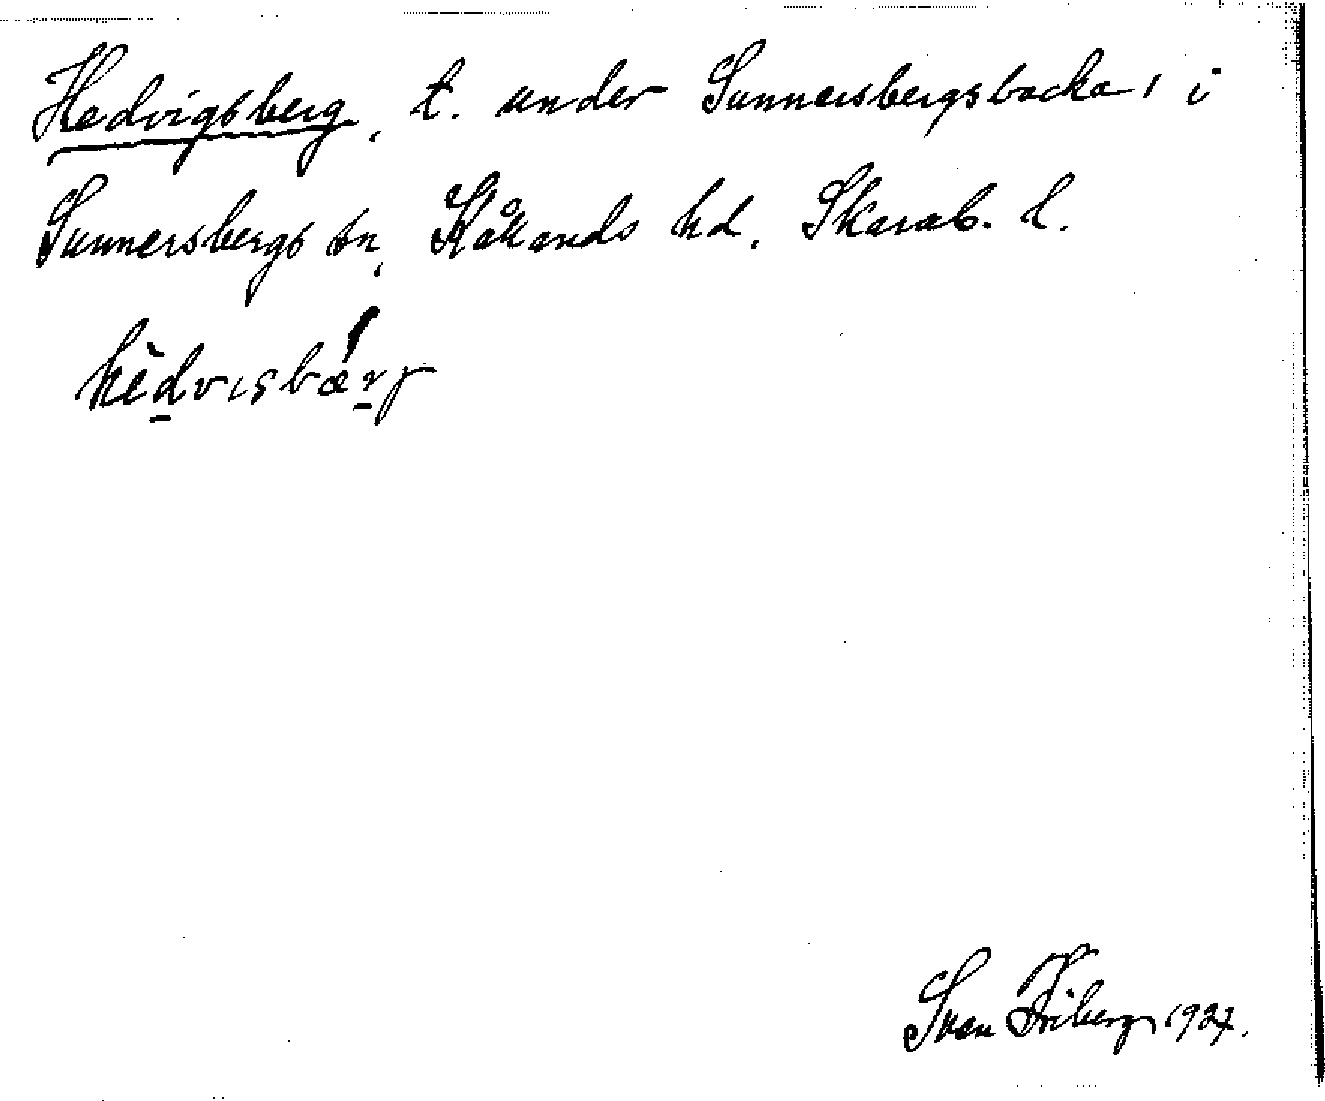 Hedvigsberg, t. under Sunnersbergsbacka, i
Sunnersbergs sn, Kållands hd, Skarab. l.
hèdvisbærj
Sven Friberg 1927.